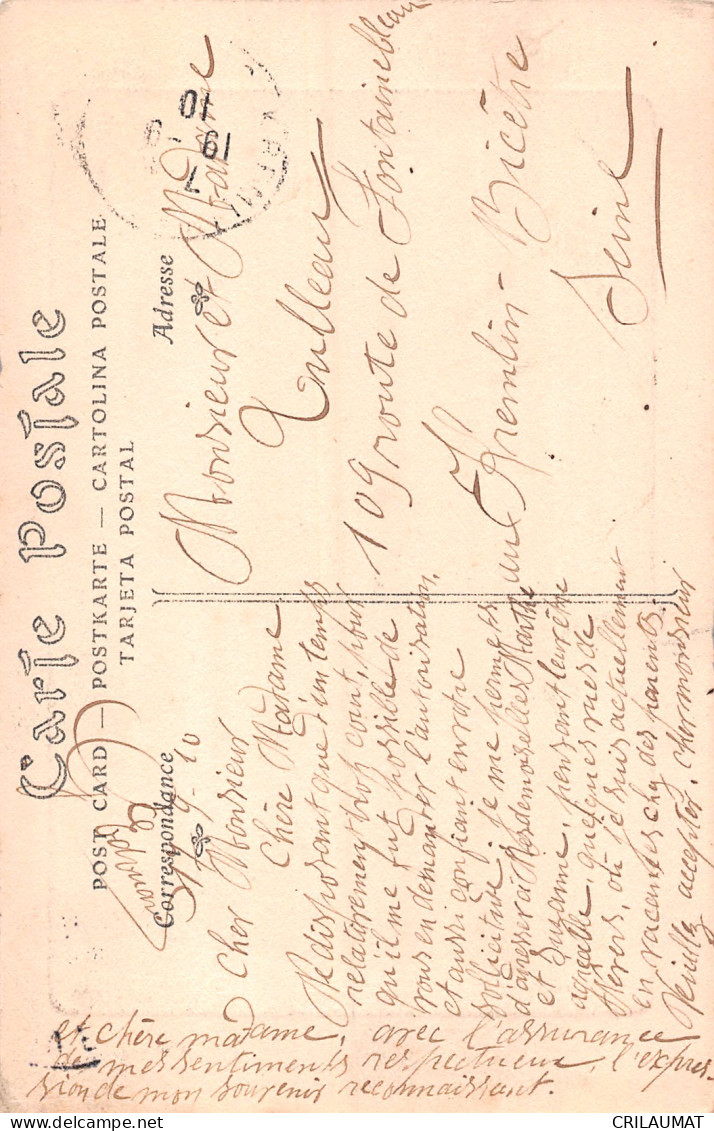 Carte Postale
POST CARD — POSTKARTE — CARTOLINA POSTALE
TARJETA POSTAL
Correspondance
Adresse
10
19
7 9
9-10
Cher Monsieur
Chère Madame
Ne disposant que d'un temps
relativement trop court, pour
qu'il me fut possible de
vous en demander l'autorisation,
et aussi confiant en votre
sollicitude, je me permets
d'adresser à Mesdemoiselles Marthe
et Suzanne, pensant leur être
agréable, quelques vues de
où je suis actuellement
en vacances chez des parents.
Veuillez accepter, cher monsieur
et chère madame, avec l'assurance
de mes sentiments respectueux, l'expres-
sion de mon souvenir reconnaissant.
Monsieur et Madame
109 route de Fontainebleau
au Kremlin-Bicêtre
Seine
CRILAUMAT